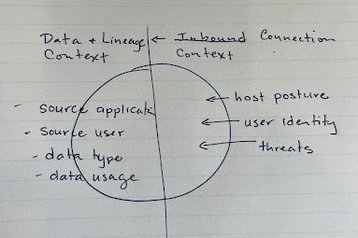 Data + Lineage ← Inbound Connection
Context Context
- source applicatc
- source user
- data type
- data usage
← host posture
← user identity
← threats